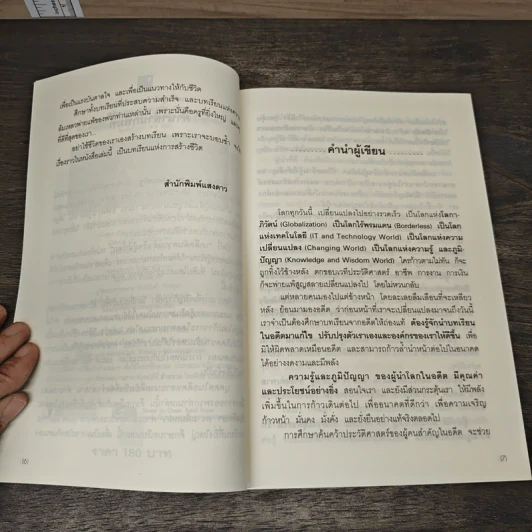 เพื่อเป็นแรงบันดาลใจ และเพื่อเป็นแนวทางให้กับชีวิต
ศึกษาทั้งบทเรียนที่ประสบความสำเร็จ และบทเรียนแห่งความ
ล้มเหลวพ่ายแพ้ของพวกท่านเหล่านั้น เพราะนั่นคือครูที่ยิ่งใหญ่ และ
ที่ดีที่สุดของเรา
อย่าใช้ชีวิตของเราเองสร้างบทเรียน เพราะเราจะบอบช้ำ
เรื่องราวในหนังสือเล่มนี้ เป็นบทเรียนแห่งการสร้างชีวิต
สำนักพิมพ์แสงดาว
(6)
คำนำผู้เขียน
โลกทุกวันนี้ เปลี่ยนแปลงไปอย่างรวดเร็ว เป็นโลกแห่งโลกา-
ภิวัตน์ (Globalization) เป็นโลกไร้พรมแดน (Borderless) เป็นโลก
แห่งเทคโนโลยี (IT and Technology World) เป็นโลกแห่งความ
เปลี่ยนแปลง (Changing World) เป็นโลกแห่งความรู้ และภูมิ-
ปัญญา (Knowledge and Wisdom World) ใครก้าวตามไม่ทัน ก็จะ
ถูกทิ้งไว้ข้างหลัง ตกขอบเวทีประวัติศาสตร์ อาชีพ การงาน การเงิน
ก็จะพ่ายแพ้สูญสลายเปลี่ยนแปลงไป โดยไม่หวนกลับ
แต่หลายคนมองไปแต่ข้างหน้า โดยละเลยลืมเลือนที่จะเหลียว
หลัง ย้อนมามองอดีต ว่าก่อนหน้าที่เราจะเปลี่ยนแปลงมาจนถึงวันนี้
เราจำเป็นต้องศึกษาบทเรียนจากอดีตให้ถ่องแท้ ต้องรู้จักนำบทเรียน
ในอดีตมาแก้ไข ปรับปรุงตัวเราเองและองค์กรของเราให้ดีขึ้น เพื่อ
มิให้ผิดพลาดเหมือนอดีต และสามารถก้าวล้ำนำหน้าต่อไปในอนาคต
ได้อย่างงดงามและมีพลัง
ความรู้และภูมิปัญญา ของผู้นำโลกในอดีต มีคุณค่า
และประโยชน์อย่างยิ่ง สอนใจเรา และยังมีส่วนกระตุ้นเรา ให้มีพลัง
เพิ่มขึ้นในการก้าวเดินต่อไป เพื่ออนาคตที่ดีกว่า เพื่อความเจริญ
ก้าวหน้า มั่นคง มั่งคั่ง และยั่งยืนอย่างแท้จริงตลอดไป
การศึกษาค้นคว้าประวัติศาสตร์ของผู้คนสำคัญในอดีต จะช่วย
(7)
ราคา 180 บาท